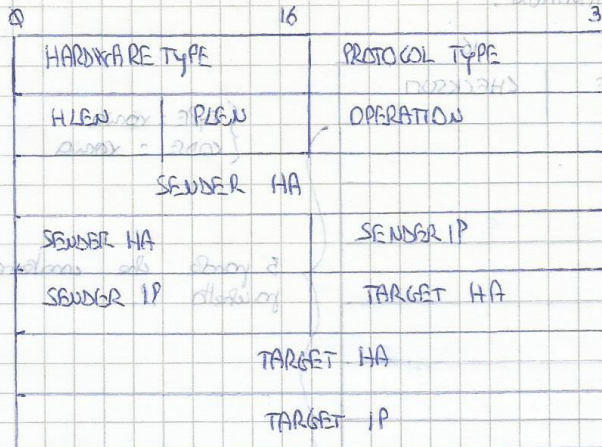 0 16 3
HARDWARE TYPE PROTOCOL TYPE
HLEN PLEN OPERATION
SENDER HA
SENDER HA SENDER IP
SENDER IP TARGET HA
TARGET HA
TARGET IP